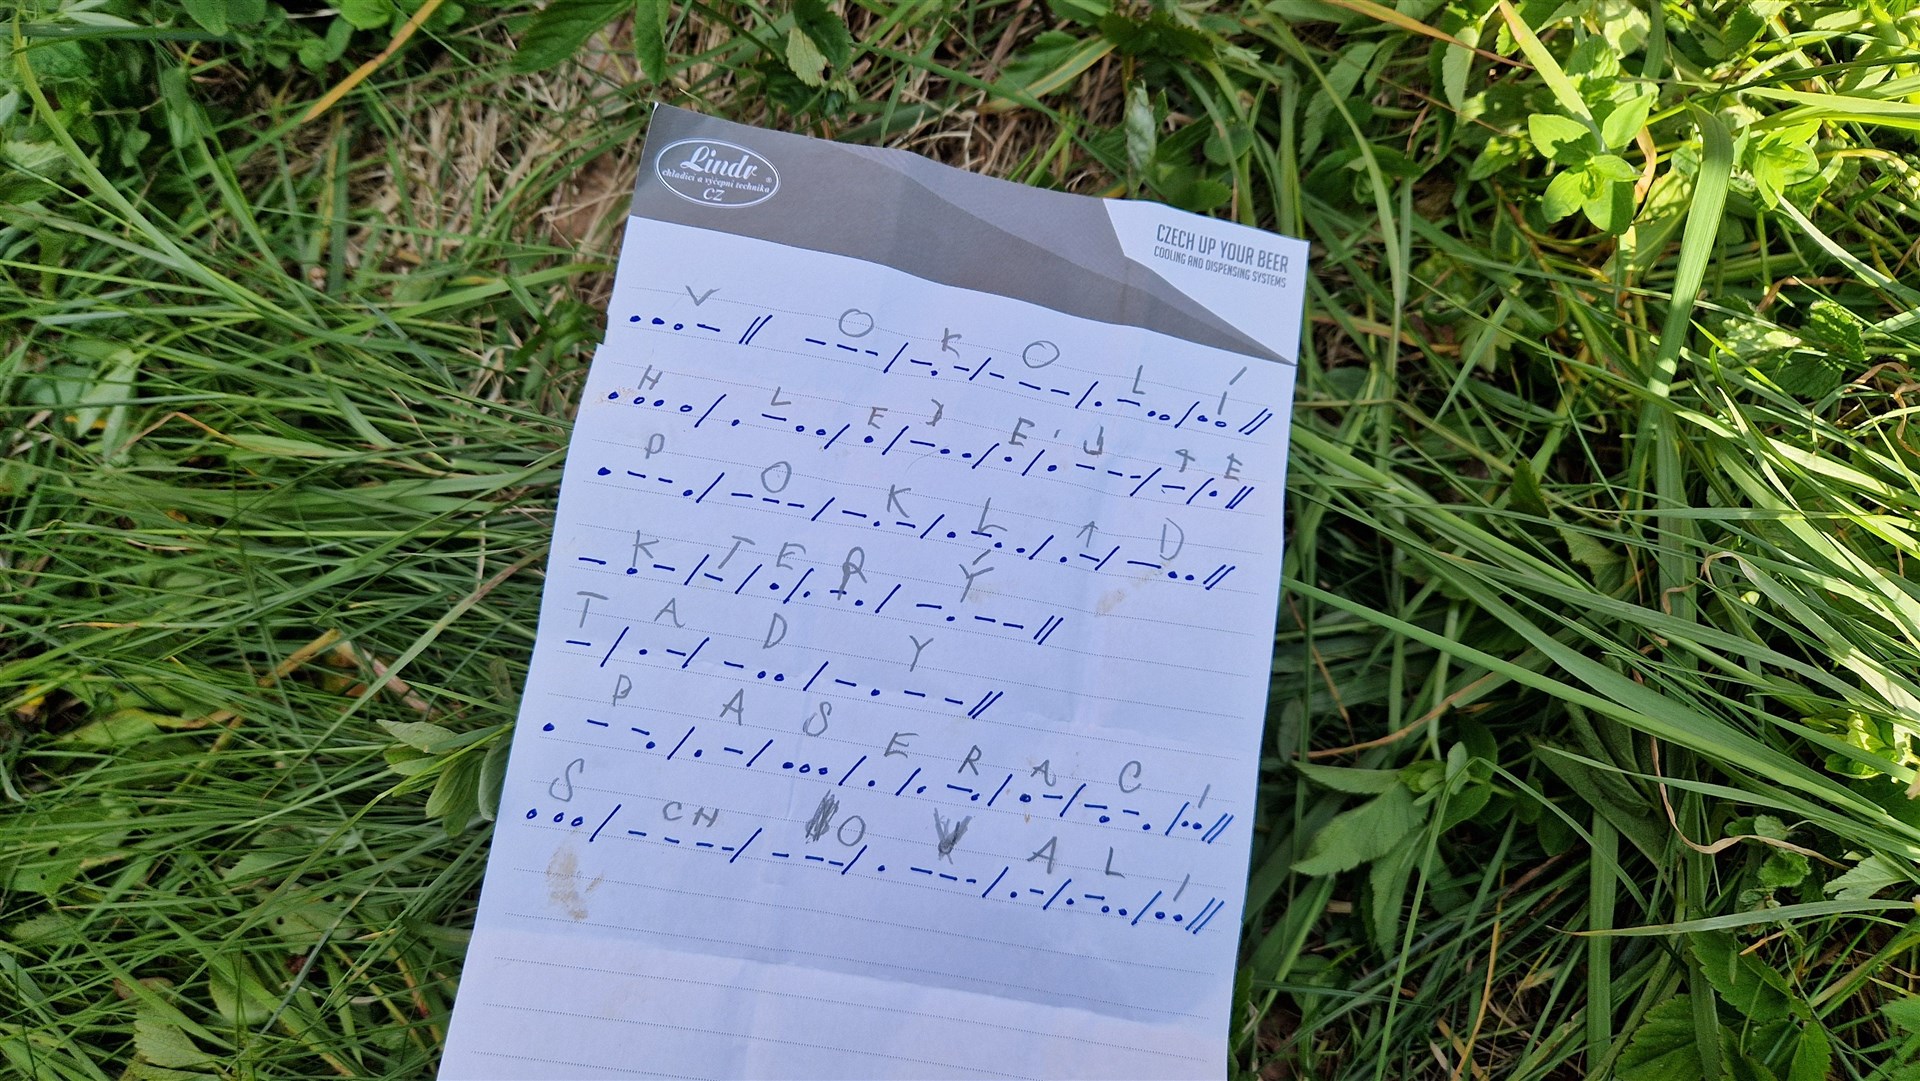 Lindr ®
chladicí a výčepní technika
CZ
CZECH UP YOUR BEER
COOLING AND DISPENSING SYSTEMS
V OKOLÍ
...-// ---/-.-/---/.-../..//
HLEDEJTE
..../.-.././-.././.---/-/.//
POKLAD
.--./---/-.-/.-../.-/-..//
KTERÝ
-.-/-/./.-./-.--//
TADY
-/.-/-../-.--//
PASERACI
.--./.-/.../././-./.-/-.-./..//
SCHOVALI
.../----/---/.---/.-/.-../..//